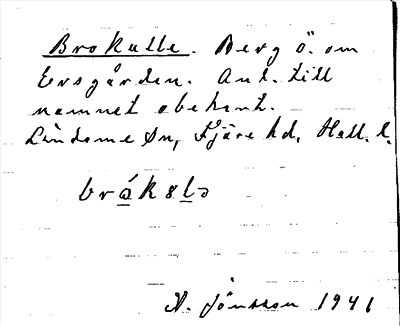 Brokulle. Berg ö. om
Ersgården. Anl. till
namnet obekant.
Lindome sn, Fjäre hd, Hall. l.
brák8lə
N. Jönsson 1941